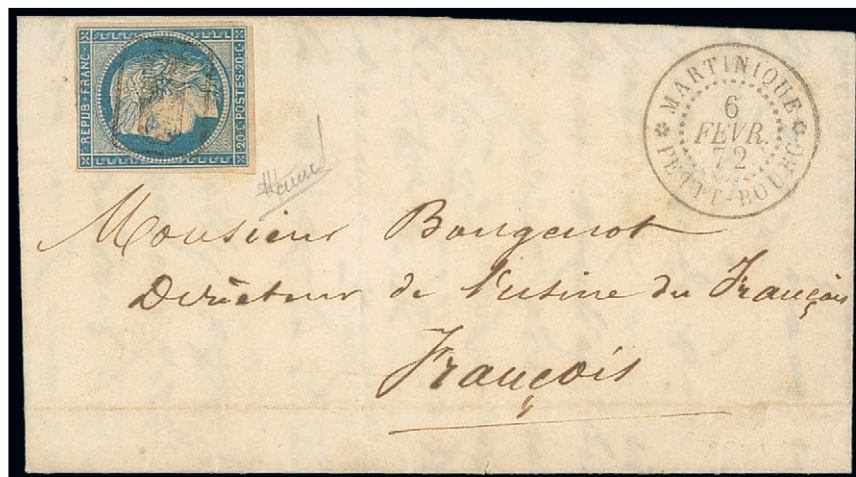 REPUB · FRANC ·
20 · C · POSTES · 20 · C ·
MARTINIQUE
6
FEVR.
72
PETIT-BOURG
Monsieur Bougenot
Directeur de l'usine du François
François